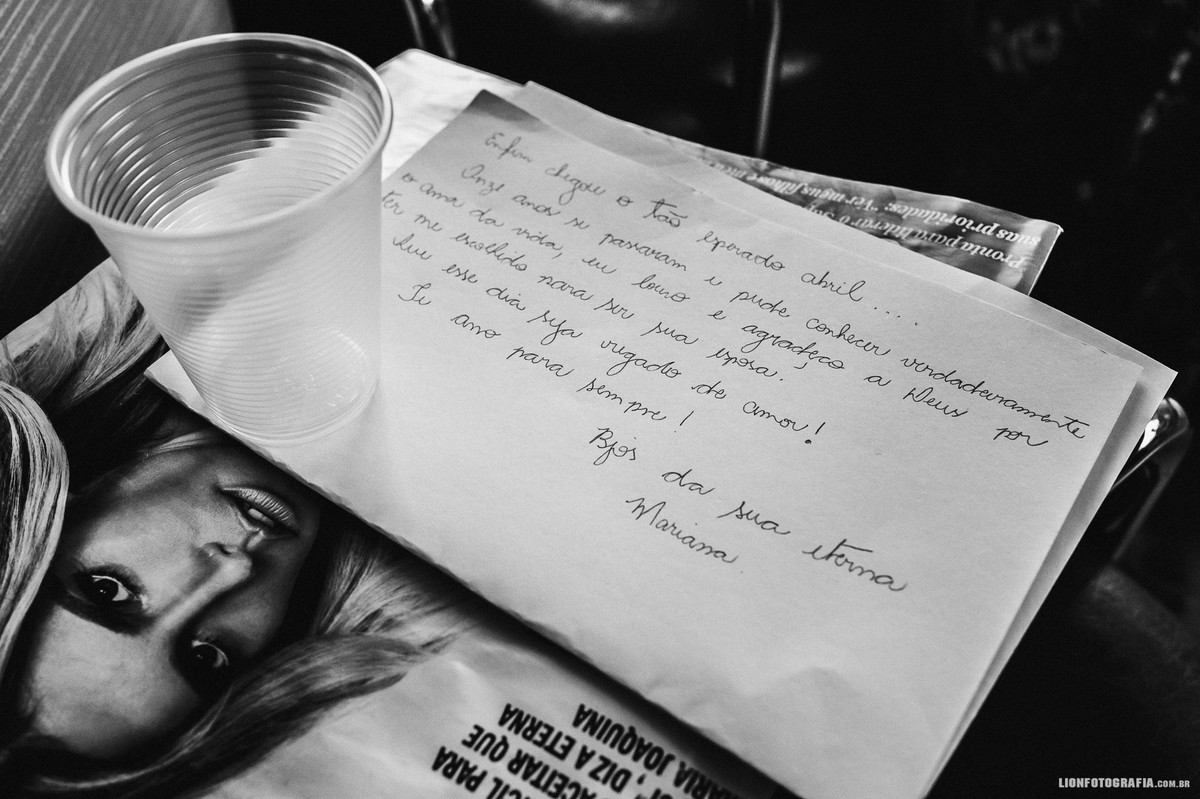 Enfim chegou o tão esperado abril.....
Onze anos se passaram e pude conhecer verdadeiramente
o amor da vida, eu louvo e agradeço a Deus por
ter me escolhido para ser sua esposa.
Que esse dia seja regado de amor!
Te amo para sempre!
Bjos da sua eterna
Mariana.
Pronta para liderar
suas prioridades: "Ver meus filhos e
CIL PARA
ACEITAR QUE
", DIZ A ETERNA
MARIA JOAQUINA
LIONFOTOGRAFIA.COM.BR